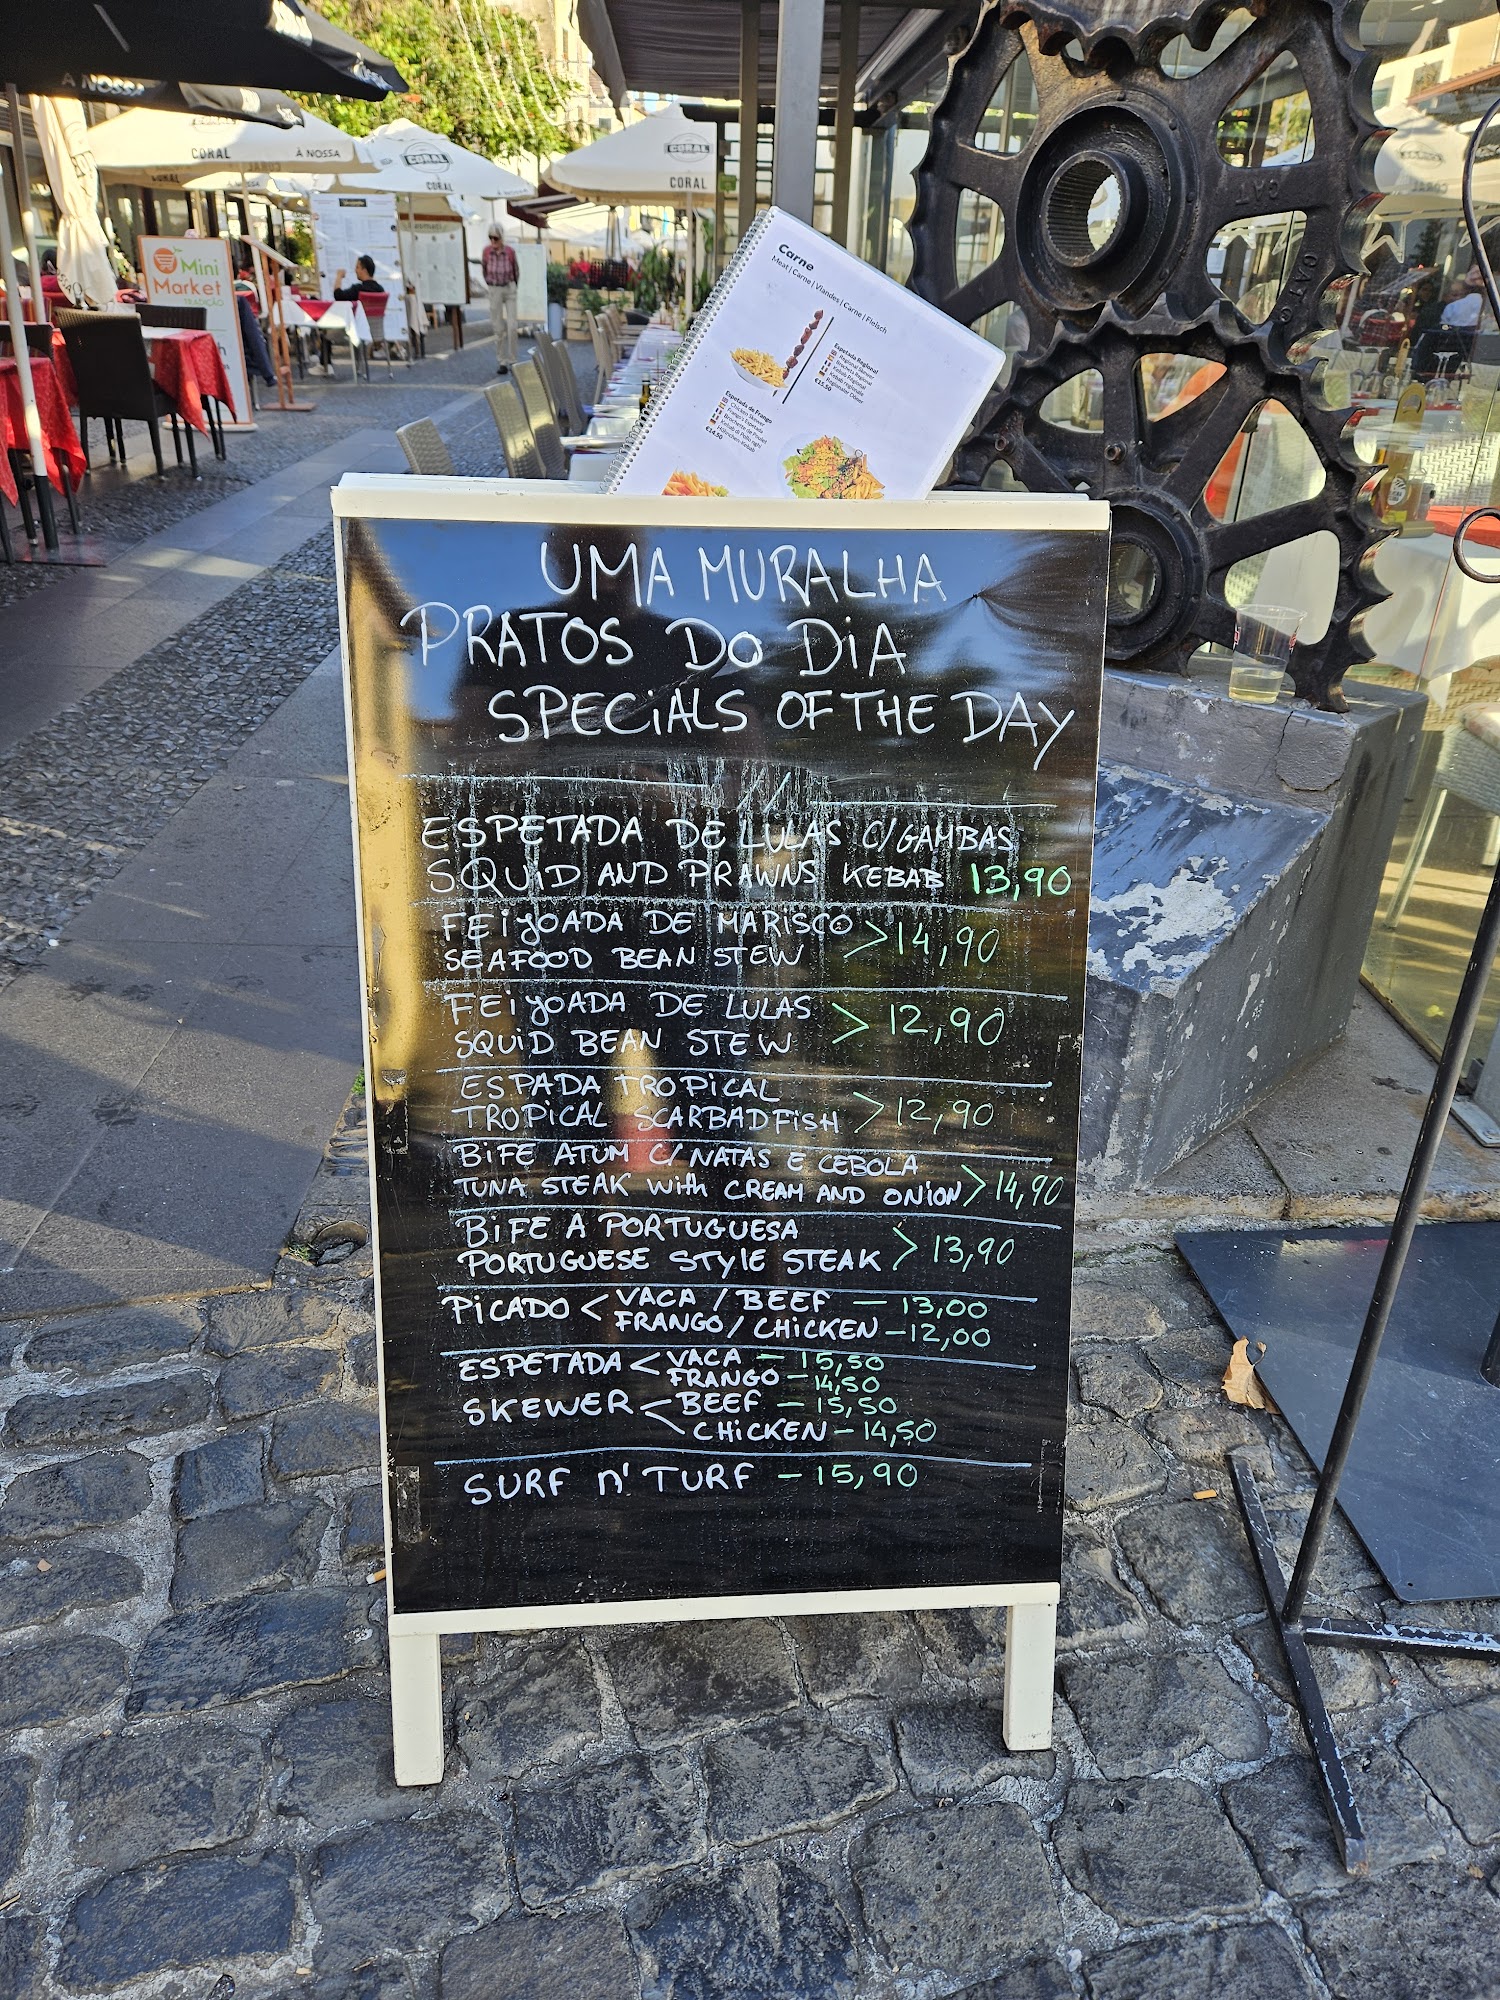 A NOSSA
CORAL
À NOSSA
CORAL
CORAL
CORAL
CORAL
Mini
Market
TRADIÇÃO
Carne
Meat | Carne | Viandes | Carne | Fleisch
Espetada Regional
€15.50
Espetada de Frango
Chicken Skewer
€14.50
CAT
UMA MURALHA
PRATOS DO DiA
SPECiALS OF THE DAY
ESPETADA DE LULAS C/GAMBAS
SQUiD AND PRAWNS KEBAB 13,90
FEiJOADA DE MARISCO
SEAFOOD BEAN STEW >14,90
FEiJOADA DE LULAS
SQUiD BEAN STEW > 12,90
ESPADA TROPiCAL
TROPiCAL SCARBADFiSH >12,90
BiFE ATUM C/ NATAS E CEBOLA
TUNA STEAK With CREAM AND ONiON >14,90
BiFE A PORTUGUESA
PORTUGUESE STYlE STEAK > 13,90
PiCADO < VACA / BEEF — 13,00
FRANGO / CHiCKEN — 12,00
ESPETADA < VACA — 15,50
FRANGO — 14,50
SKEWER < BEEF — 15,50
CHiCKEN — 14,50
SURF n' TURF — 15,90